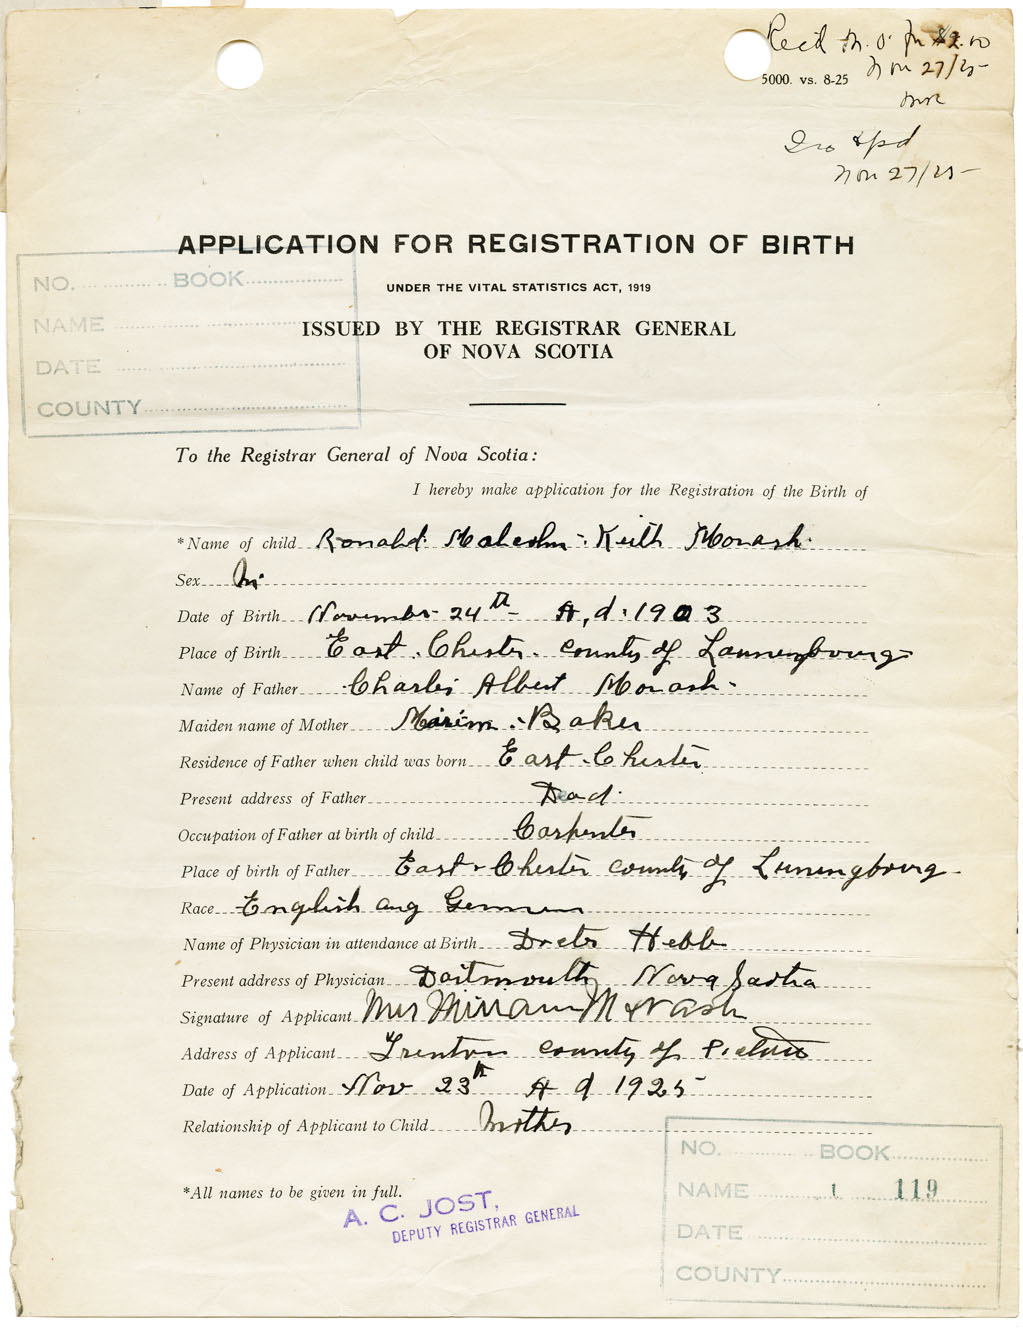 Rec'd M. O. for $2.00
5000. vs. 8-25
Nov 27/25
Nov 27/25
APPLICATION FOR REGISTRATION OF BIRTH
UNDER THE VITAL STATISTICS ACT, 1919
ISSUED BY THE REGISTRAR GENERAL
OF NOVA SCOTIA
NO. BOOK
NAME
DATE
COUNTY
To the Registrar General of Nova Scotia:
I hereby make application for the Registration of the Birth of
*Name of child Ronald Malcolm Keith Monash
Sex M.
Date of Birth November 24th A,d. 1903
Place of Birth East Chester county of Lunnengbourg
Name of Father Charles Albert Monash
Maiden name of Mother Mirim Baker
Residence of Father when child was born East Chester
Present address of Father Dead
Occupation of Father at birth of child Carpenter
Place of birth of Father East Chester county of Lunengbourg
Race English ang German
Name of Physician in attendance at Birth Docter Hebb
Present address of Physician Dartmouth Nova Scotia
Signature of Applicant Mrs Mirriam
Address of Applicant Trenton county of Pictou
Date of Application Nov 23th A d 1925
Relationship of Applicant to Child Mother
*All names to be given in full.
A. C. JOST,
DEPUTY REGISTRAR GENERAL
NO. BOOK
NAME 1 119
DATE
COUNTY